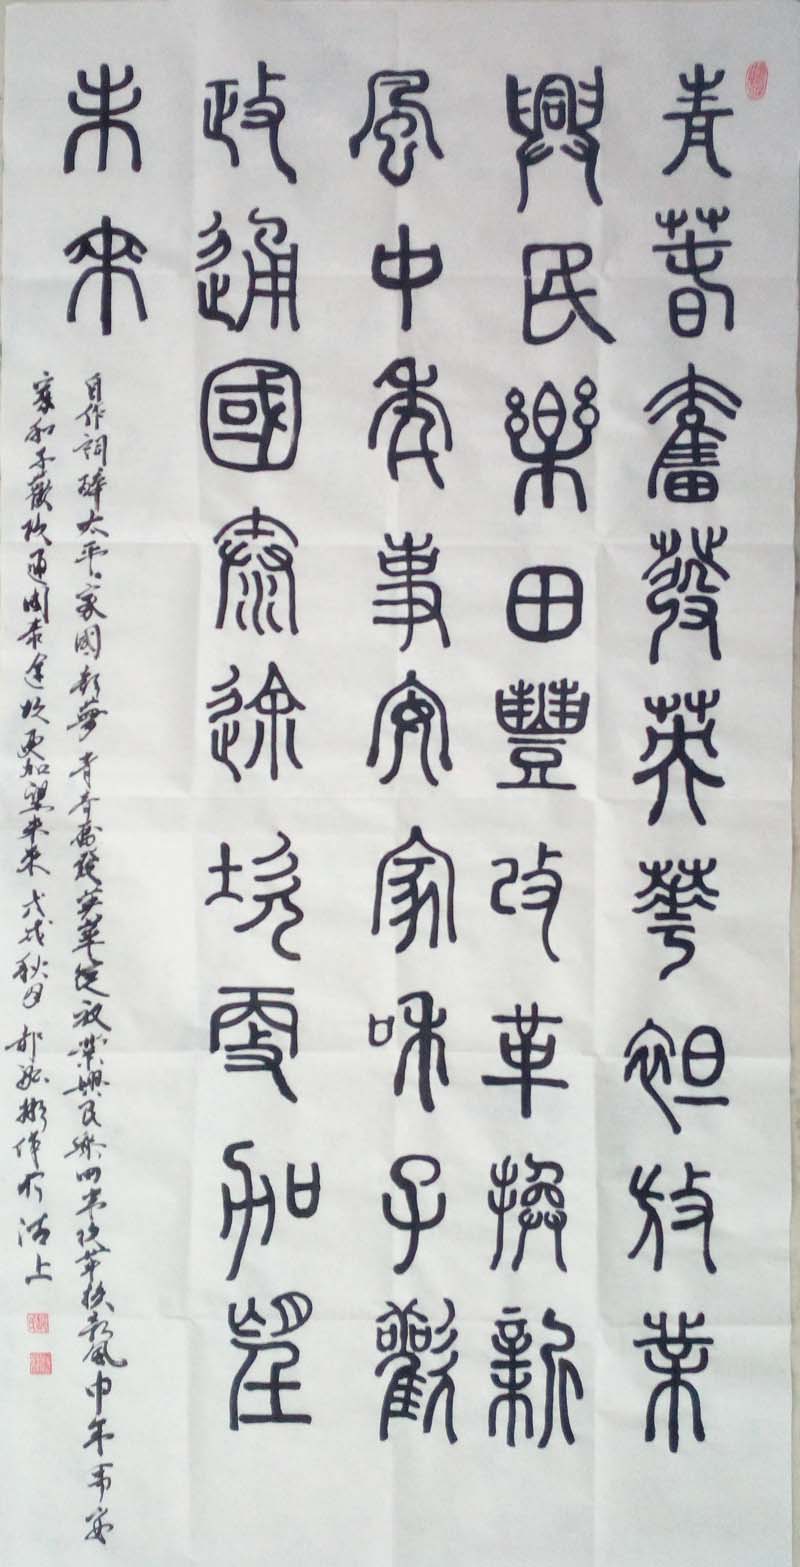 青春奮發英華綻放業
興民樂田豐改革換新
風中年事安家和子歡
政通國泰途坎更加望
未來
自作詞醉太平家國新夢青春奮發英華綻放業興民樂田豐改革換新風中年事安
家和子歡政通國泰途坎更加望未来戊戌秋月彬作於上